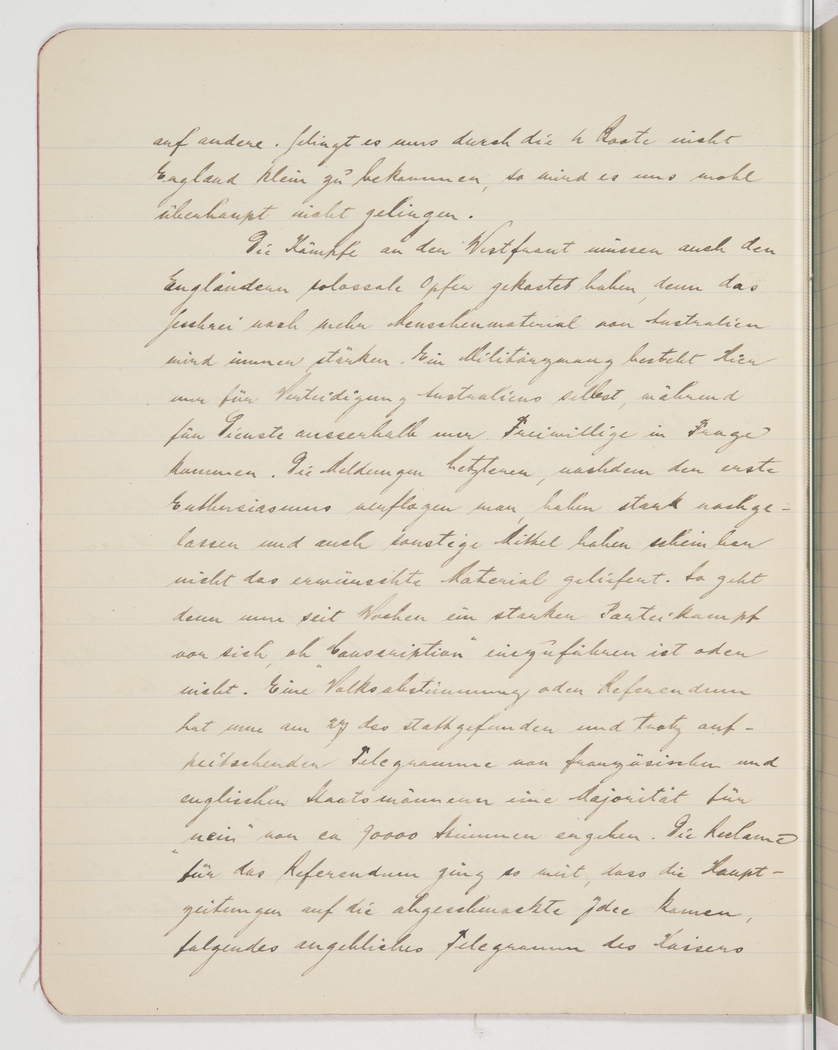 auf andere. Gelingt es uns durch die U Boote nicht
England klein zu bekommen, so wird es uns wohl
überhaupt nicht gelingen.
Die Kämpfe an der Westfront müssen auch den
Engländern colossale Opfer gekostet haben, denn das
Geschrei nach mehr Menschenmaterial von Australien
wird immer stärker. Ein Militärzwang besteht hier
nur für Verteidigung Australiens selbst, während
für Dienste ausserhalb nur Freiwillige in Frage
kommen. Die Meldungen Letzterer, nachdem der erste
Enthusiasmus verflogen war, haben stark nachge-
lassen und auch sonstige Mittel haben scheinbar
nicht das erwünschte Material geliefert. So geht
denn nun seit Wochen ein starker Parteikampf
vor sich, ob "Conscription" einzuführen ist oder
nicht. Eine Volksabstimmung oder Referendum
hat nun am 27 dso stattgefunden und trotz auf-
peitschender Telegramme von französischen und
englischen Staatsmännern eine Majorität für
"nein" von ca 70000 Stimmen ergeben. Die Reclame
für das Referendum ging so weit, dass die Haupt-
zeitungen auf die abgeschmackte Idee kamen,
folgendes angebliches Telegramm des Kaisers